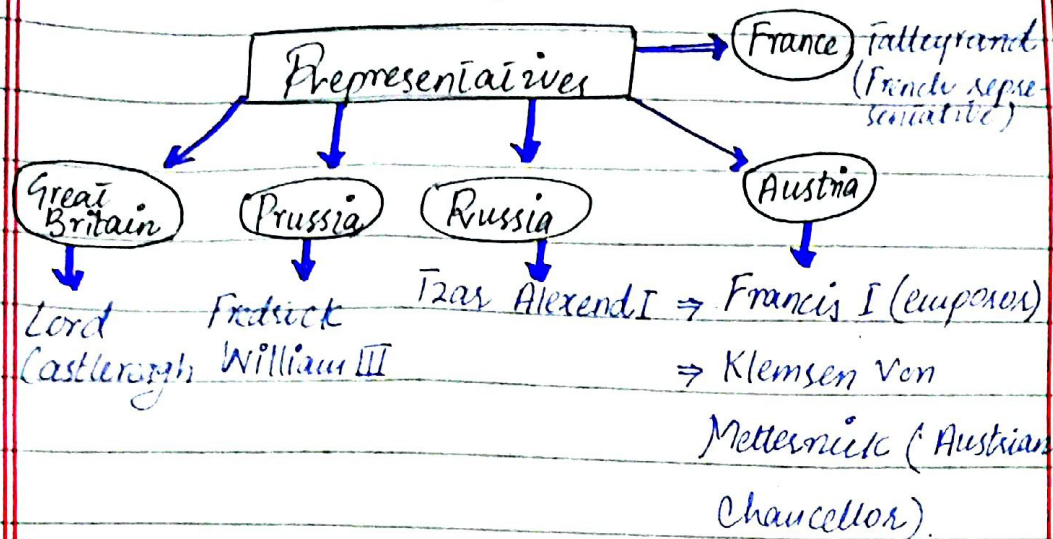 Representatives
France
Talleyrand
(French repre-
sentative)
Great
Britain
Prussia
Russia
Austria
Lord
Castlerorgh
Fredrick
William III
Tzar Alexend I
⇒ Francis I (emporor)
⇒ Klemsen Von
Metternick (Austrian
Chancellor).